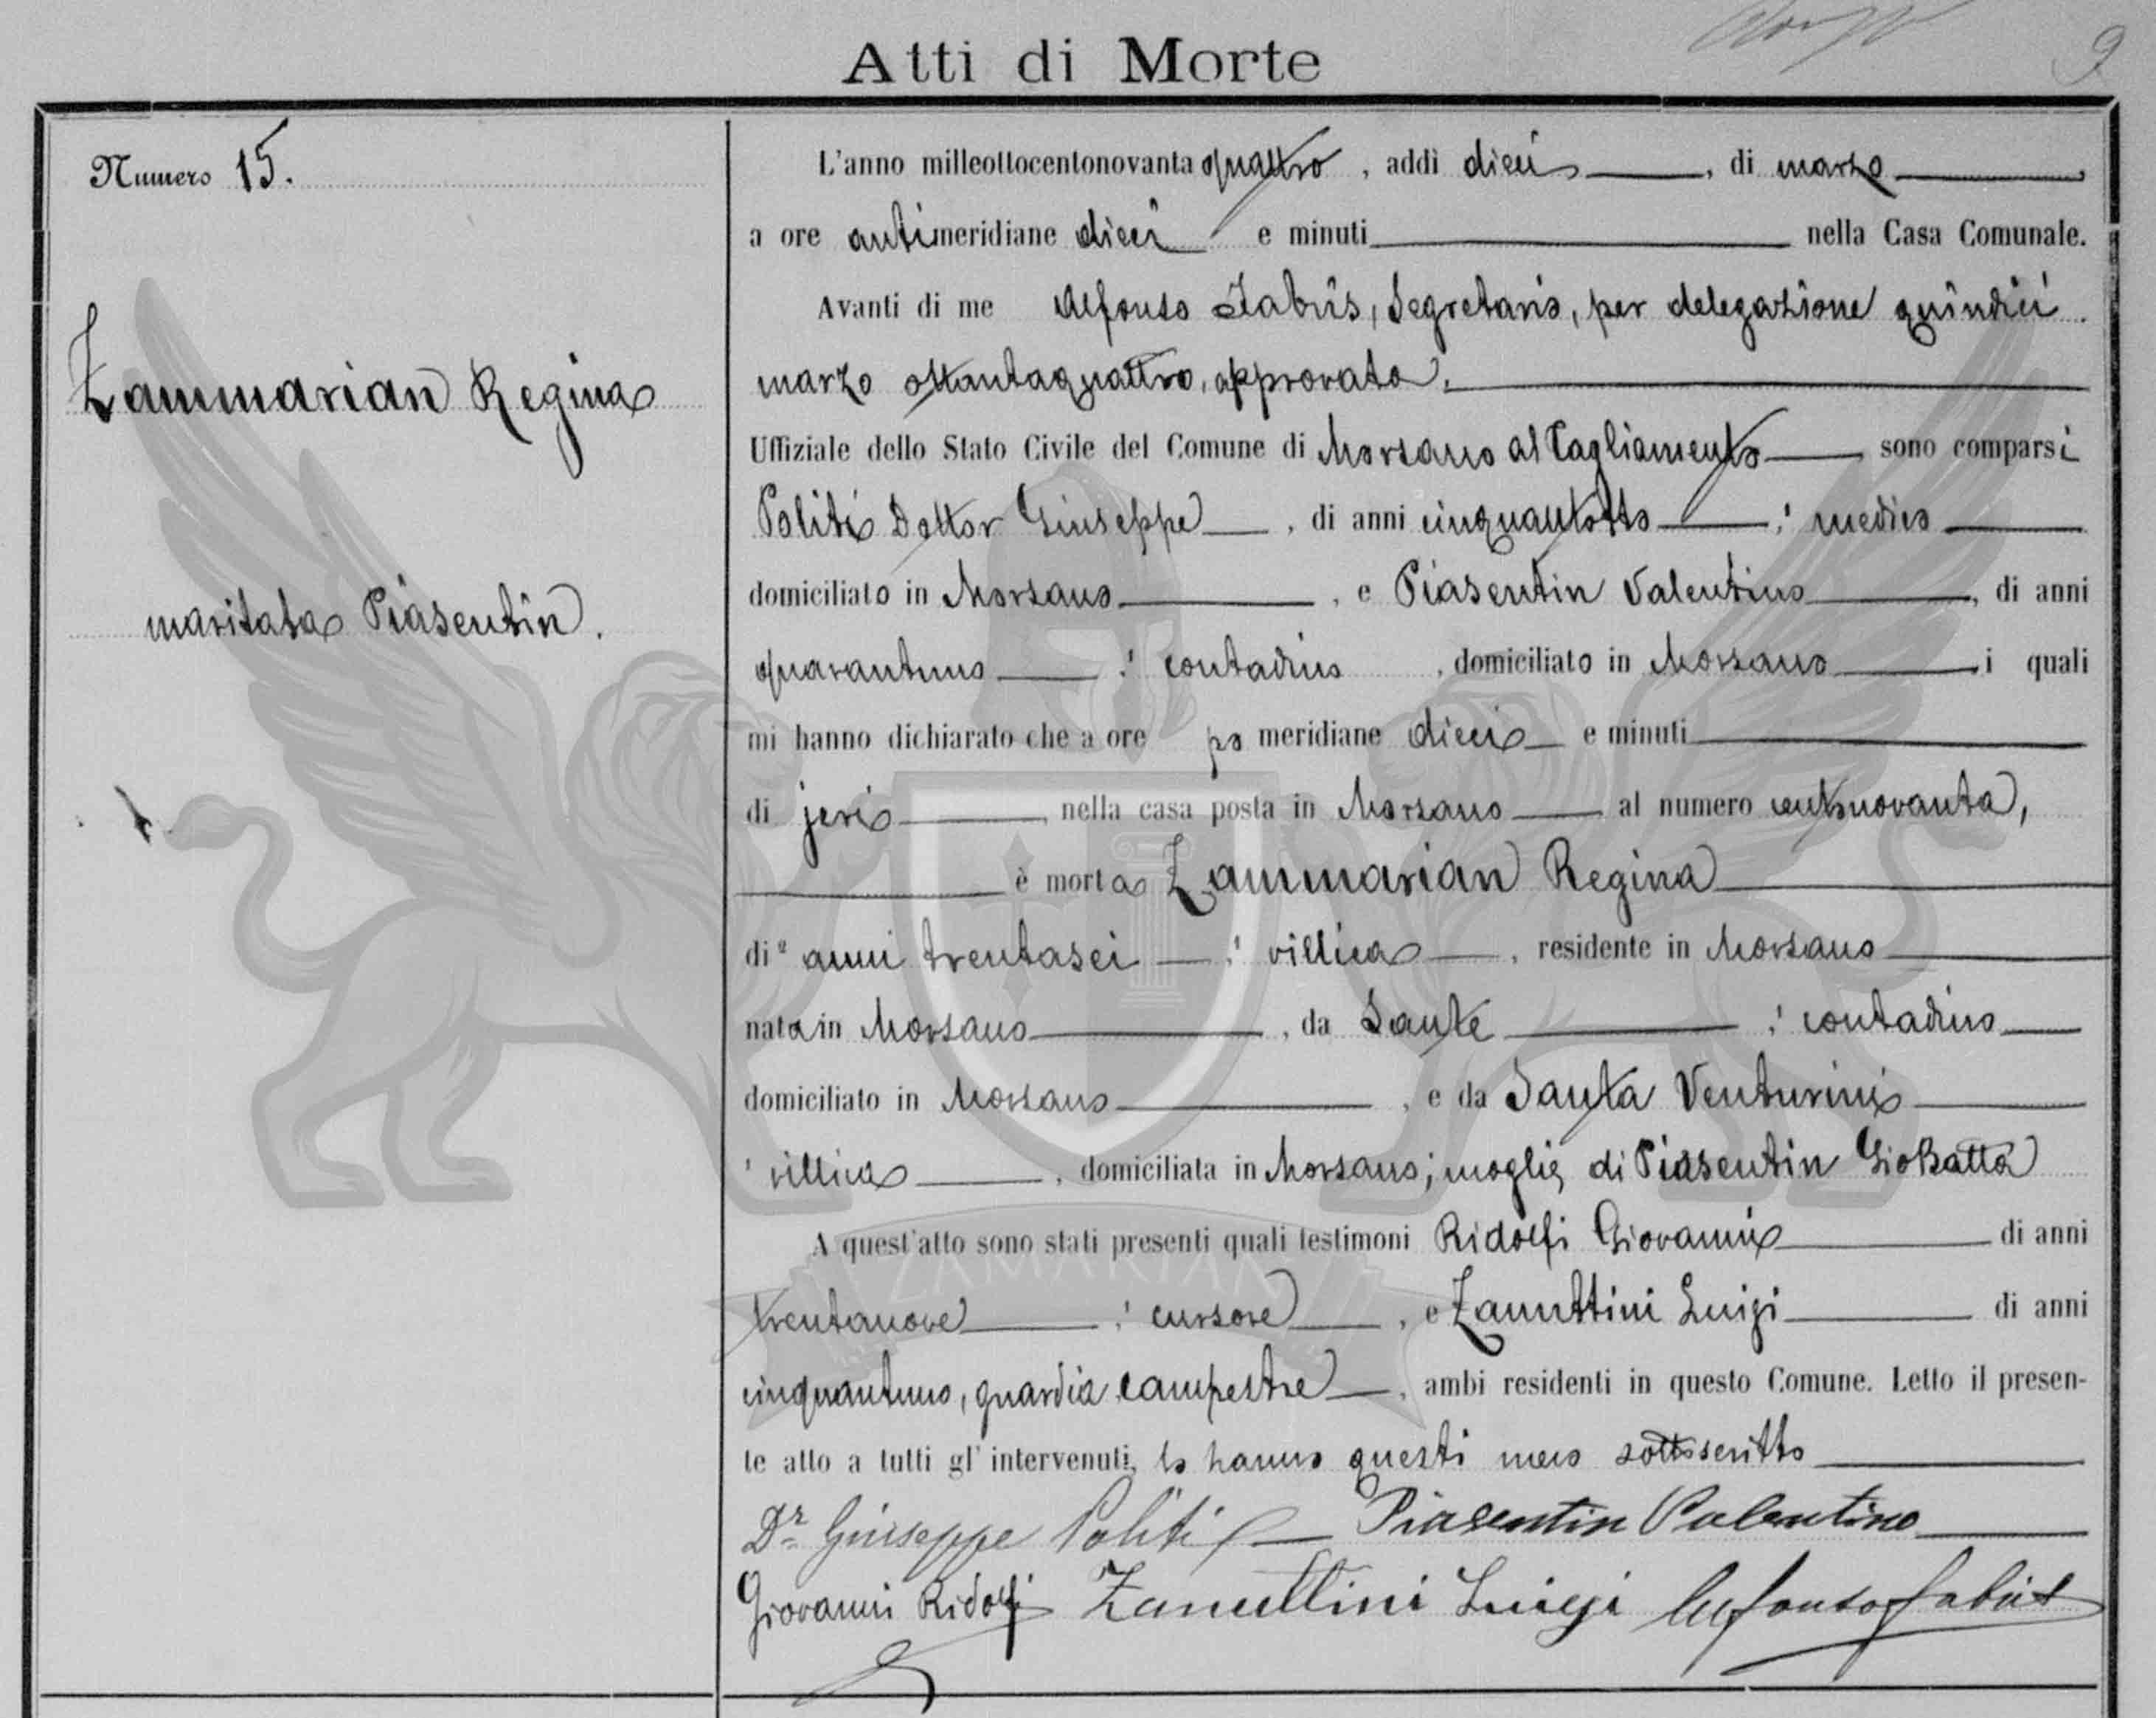 Atti di Morte
9
Numero 15.
Zammarian Regina
maritata Piasentin.
L'anno milleottocentonovanta quattro, addì dieci, di marzo
a ore antimeridiane dieci e minuti nella Casa Comunale.
Avanti di me Alfonso Fabris, Segretario, per delegazione quindici
marzo ottantaquattro, approvata.
Uffiziale dello Stato Civile del Comune di Morsano al Tagliamento sono comparsi
Politi Dottor Giuseppe, di anni cinquantotto, medico
domiciliato in Morsano, e Piasentin Valentino, di anni
quarantuno, contadino, domiciliato in Morsano i quali
mi hanno dichiarato che a ore po meridiane dieci e minuti
di jeri, nella casa posta in Morsano al numero centonovanta,
è morta Zammarian Regina
di anni trentasei, villica, residente in Morsano
nata in Morsano, da Sante, contadino
domiciliato in Morsano, e da Santa Venturini
villica, domiciliata in Morsano; moglie di Piasentin GioBatta
A quest'atto sono stati presenti quali testimoni Ridolfi Giovanni di anni
trentanove, cursore, e Zanuttini Luigi di anni
cinquantuno, guardia campestre, ambi residenti in questo Comune. Letto il presen-
te atto a tutti gl'intervenuti, lo hanno questi meco sottoscritto
Dr Giuseppe Politi Piasentin Valentino
Giovanni Ridolfi Zanuttini Luigi Alfonso Fabris
ZAMARIAN